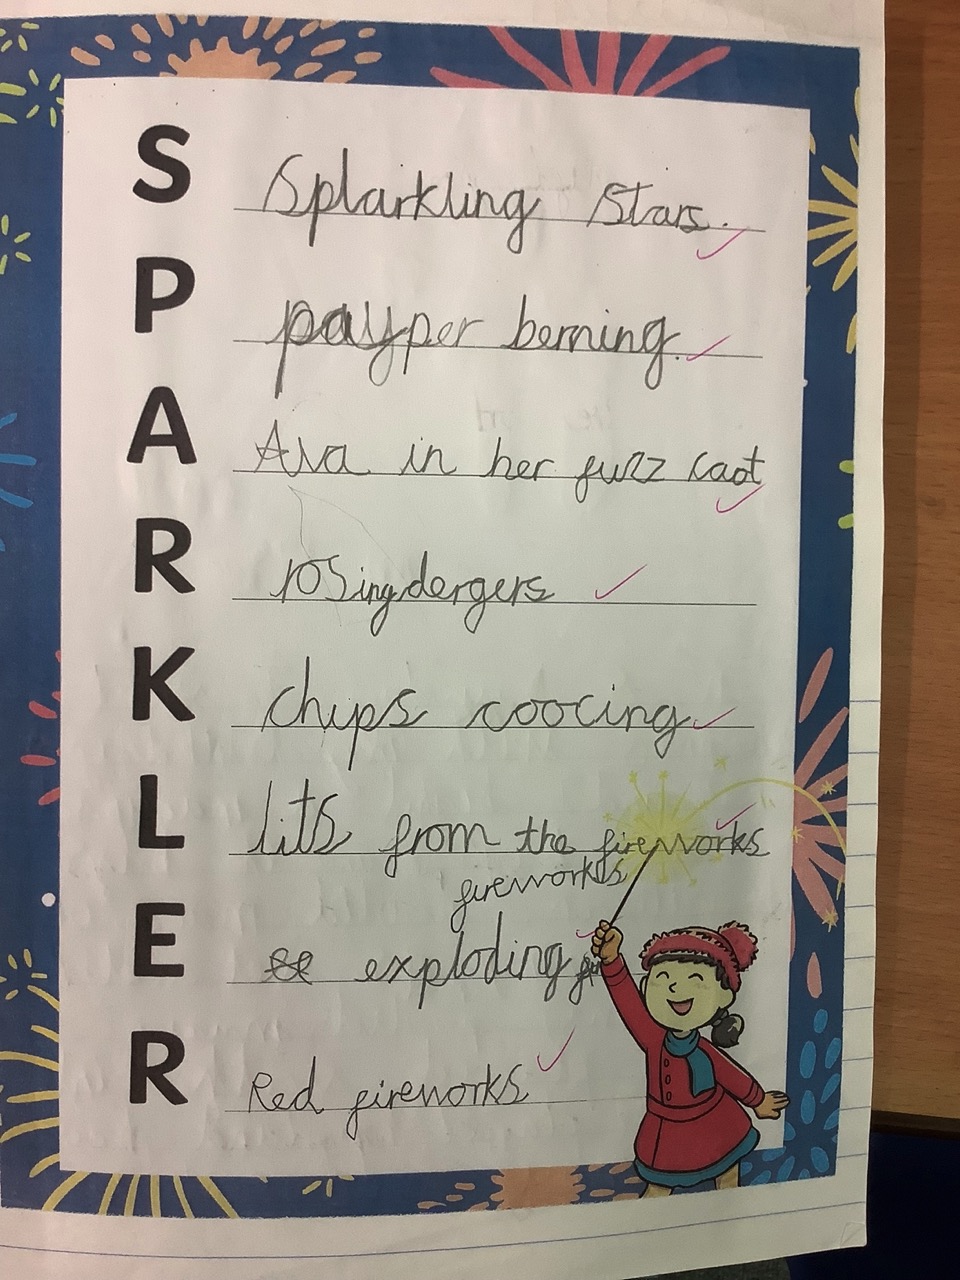 S Splarkling Stars.
P payper berning.
A Ava in her fuzz caot
R rosingdergers
K chips coocing
L lits from the fireworks
fireworks
E exploding
R Red fireworks